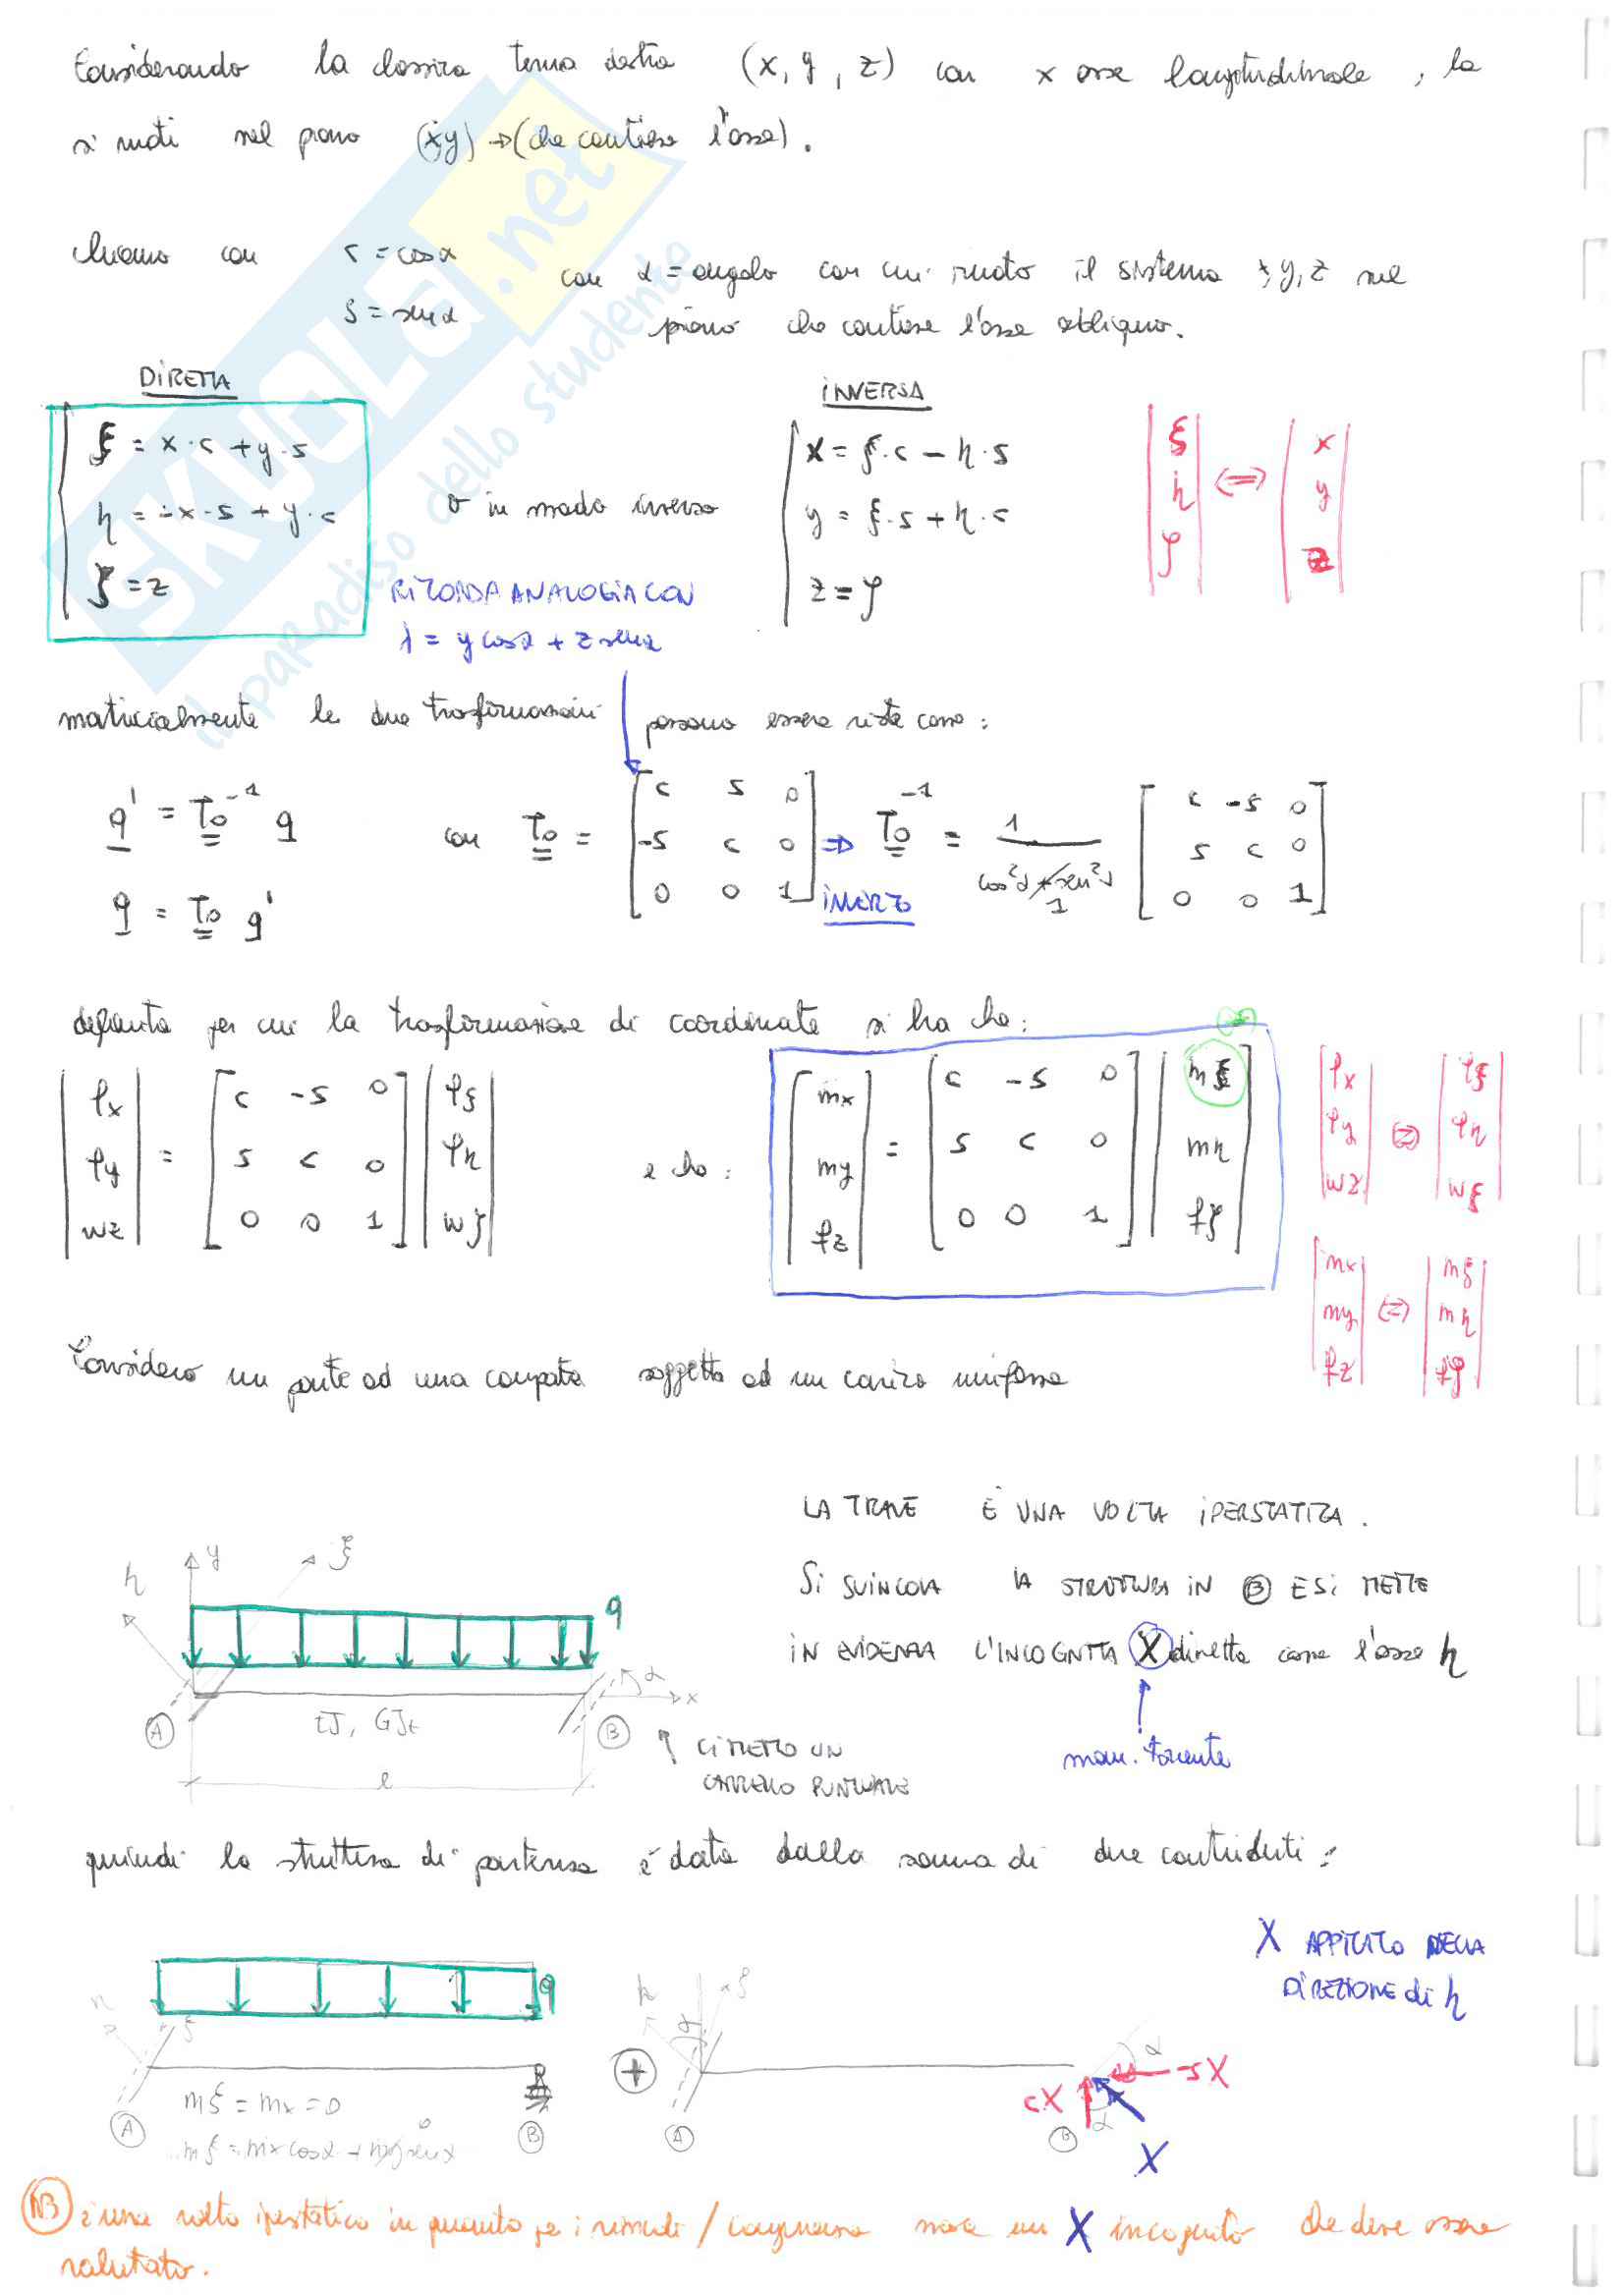 Considerando la classica terna destra (x, y, z) con x asse longitudinale, la
si ruoti nel piano (x,y) → (che contiene l'asse).
chiamo con c = cosα
s = senα
con α = angolo con cui ruoto il sistema x,y,z nel
piano che contiene l'asse obliquo.
DIRETTA
ξ = x·c + y·s
η = -x·s + y·c
ζ = z
o in modo inverso
INVERSA
x = ξ·c - η·s
y = ξ·s + η·c
z = ζ
ξ η ζ ⇔ x y z
RICORDA ANALOGIA CON
λ = y cosα + z senα
matricialmente le due trasformazioni possono essere viste come:
q' = T0⁻¹ q
q = T0 q'
con T0 =
c s 0
-s c 0
0 0 1
⇒ INVERZO
T0⁻¹ = 1 / cos²α + sen²α
1
c -s 0
s c 0
0 0 1
definita per cui la trasformazione di coordinate si ha che:
φx φy wz =
c -s 0
s c 0
0 0 1
φξ φη wζ
e che:
mx my fz =
c -s 0
s c 0
0 0 1
mξ mη fζ
φx φy wz ⇔ φξ φη wξ
mx my fz ⇔ mξ mη fζ
Considero un ponte ad una campata soggetto ad un carico uniforme
LA TRAVE È UNA VOLTA IPERSTATICA.
SI SVINCOLA LA STRUTTURA IN B E SI METTE
IN EVIDENZA L'INCOGNITA X diretta come l'asse η
mom. torcente
η y ξ
q
α x
A EJ, GJt B
l
CI METTO UN
CARRELLO PUNTUALE
quindi la struttura di partenza è data dalla somma di due contributi:
X APPLICATO NELLA
DIREZIONE di η
η ξ q
A B
mξ = mx = 0
mξ = mx cosα + my senα
0
+
η ξ α
A B
cX sX
α α
X
NB è una volta iperstatica in quanto per i vincoli / congruenza nasce un X incognito che deve essere
valutato.
SKUOLA.net
il paradiso dello studente